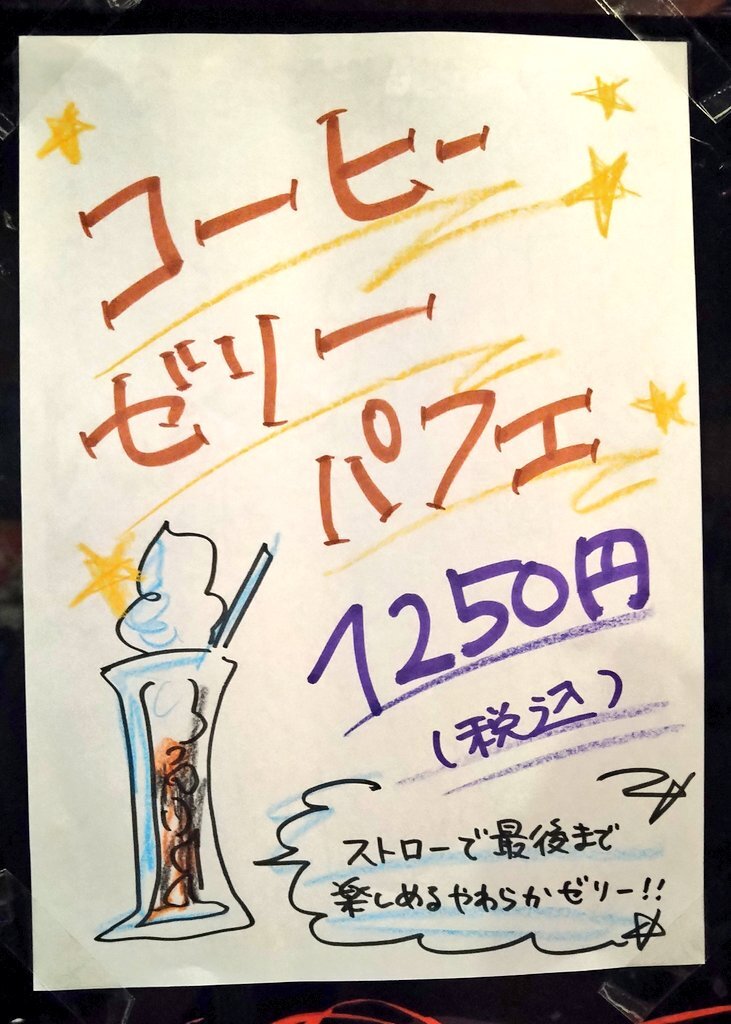 コーヒー
ゼリー
パフェ
1250円
(税込)
ストローで最後まで
楽しめるやわらかゼリー!!